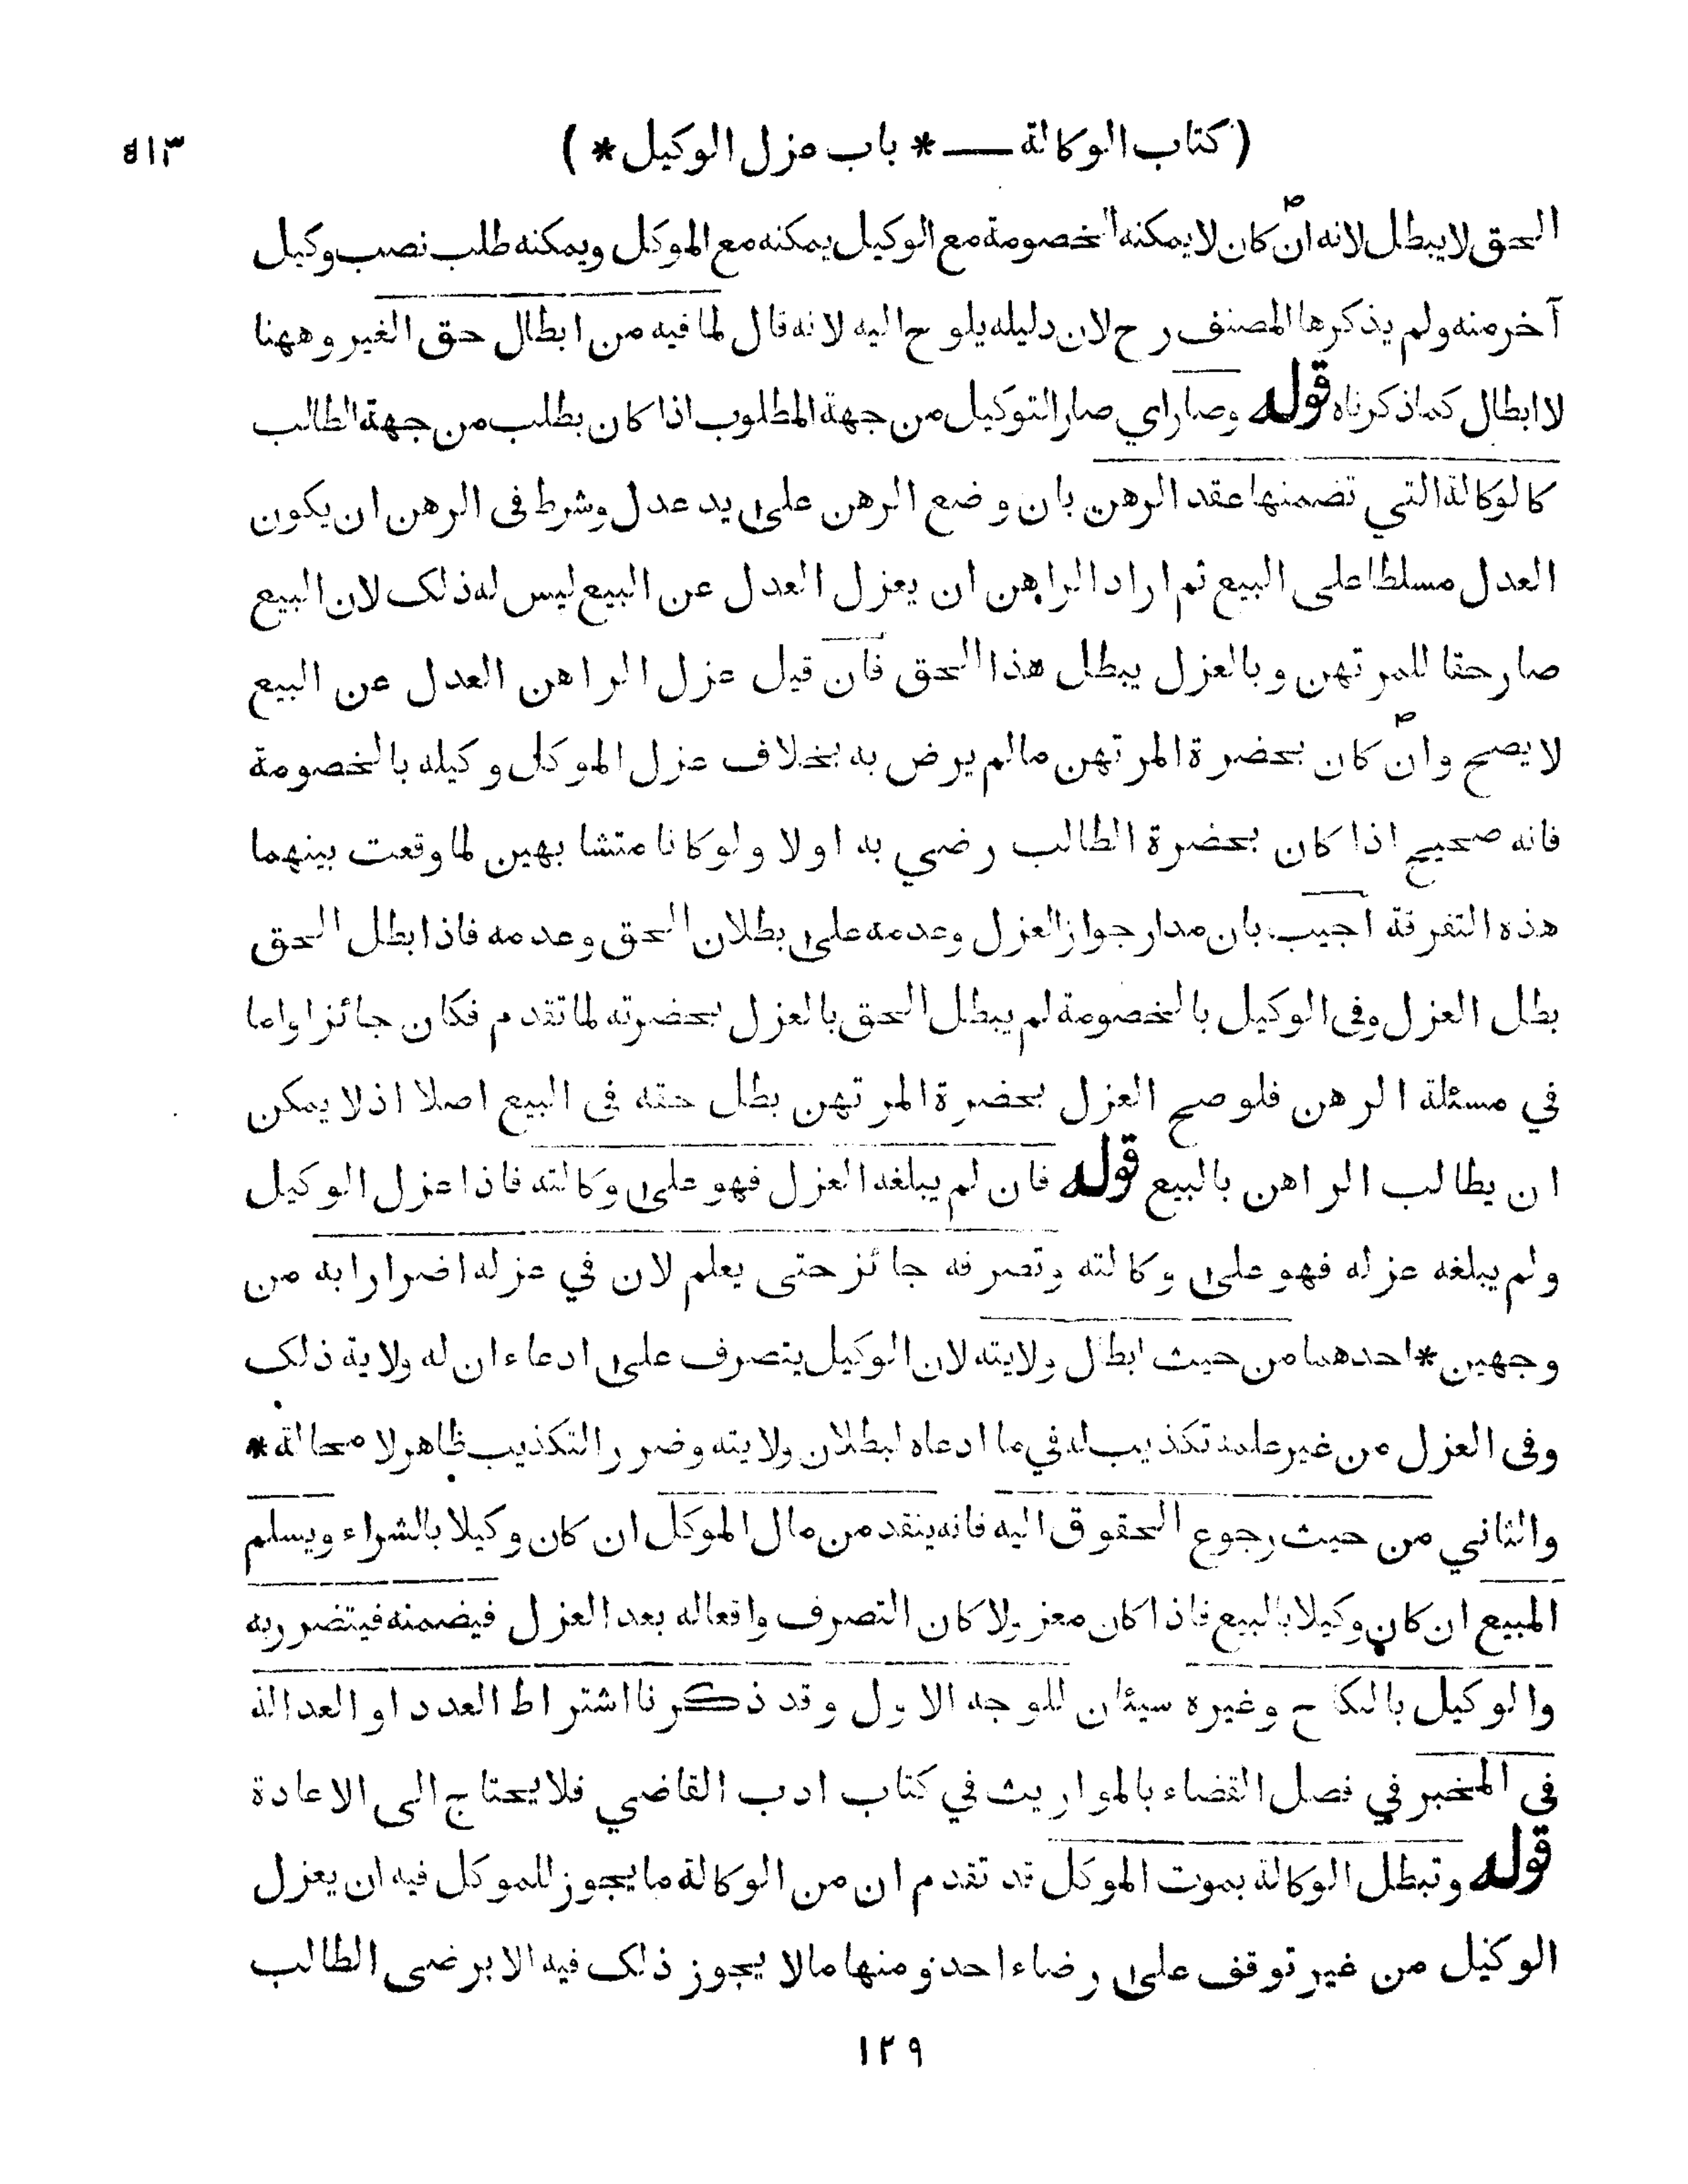 (كتاب الوكالة — * باب عزل الوكيل *) ٥١٣
الحق لايبطل لانه ان كان لايمكنه الخصومة مع الوكيل يمكنه مع الموكل ويمكنه طلب نصب وكيل
آخر منه ولم يذكرها المصنف رح لان دليله يلوح اليه لانه قال لما فيه من ابطال حق الغير وههنا
لا ابطال كماذكرناه قوله وصار اي صار التوكيل من جهة المطلوب اذا كان بطلب من جهة الطالب
كالوكالة التي تضمنها عقد الرهن بان وضع الرهن على يد عدل وشرط فى الرهن ان يكون
العدل مسلطا على البيع ثم اراد الراهن ان يعزل العدل عن البيع ليس له ذلك لان البيع
صار حقا للمرتهن وبالعزل يبطل هذا الحق فان قيل عزل الراهن العدل عن البيع
لا يصح وان كان بحضرة المرتهن مالم يرض به بخلاف عزل الموكل وكيله بالخصومة
فانه صحيح اذا كان بحضرة الطالب رضي به اولا ولو كانا متشابهين لما وقعت بينهما
هذه التفرقة اجيب بان مدار جواز العزل وعدمه على بطلان الحق وعدمه فاذا بطل الحق
بطل العزل وفى الوكيل بالخصومة لم يبطل الحق بالعزل بحضرته لما تقدم فكان جائزا واما
في مسئلة الرهن فلو صح العزل بحضرة المرتهن بطل حقه فى البيع اصلا اذ لا يمكن
ان يطالب الراهن بالبيع قوله فان لم يبلغه العزل فهو على وكالته فاذا عزل الوكيل
ولم يبلغه عزله فهو على وكالته وتصرفه جائز حتى يعلم لان في عزله اضرارا به من
وجهين * احدهما من حيث ابطال ولايته لان الوكيل يتصرف على ادعاء ان له ولاية ذلك
وفى العزل من غير علمه تكذيب له في ما ادعاه لبطلان ولايته وضرر التكذيب ظاهر لا محالة *
والثاني من حيث رجوع الحقوق اليه فانه ينقد من مال الموكل ان كان وكيلا بالشراء ويسلم
المبيع ان كان وكيلا بالبيع فاذا كان معزولا كان التصرف وافعاله بعد العزل فيضمنه فيتضرر به
والوكيل بالنكاح وغيره سيئان للوجه الاول وقد ذكرنا اشتراط العدد او العدالة
فى المخبر في فصل القضاء بالمواريث في كتاب ادب القاضي فلا يحتاج الى الاعادة
قوله وتبطل الوكالة بموت الموكل قد تقدم ان من الوكالة ما يجوز للموكل فيه ان يعزل
الوكيل من غير توقف على رضاء احد ومنها مالا يجوز ذلك فيه الا برضى الطالب
١٢٩